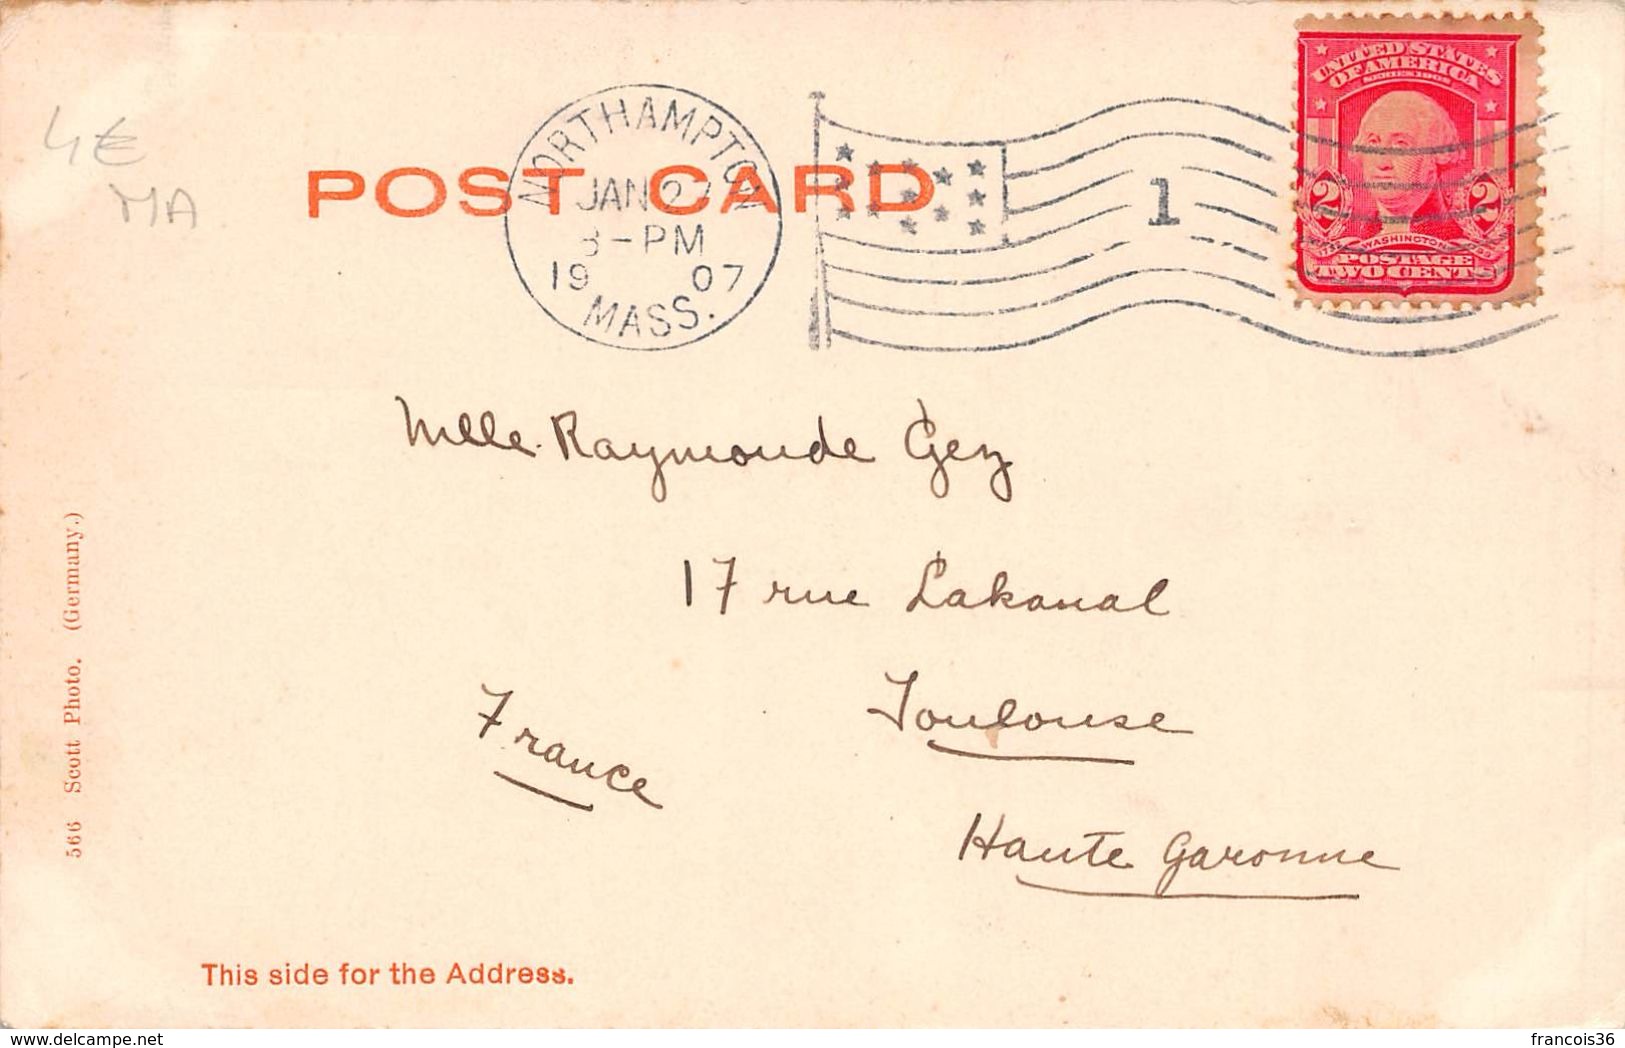 4€
MA
POST CARD
NORTHAMPTON
JAN 27
3-PM
19 07
MASS.
1
UNITED STATES
OF AMERICA
SERIES 1902
WASHINGTON
2 2
POSTAGE
TWO CENTS
Mlle Raymonde Gez
17 rue Lakanal
Toulouse
France
Haute Garonne
566 Scott Photo. (Germany.)
This side for the Address.
delcampe.net
francois36